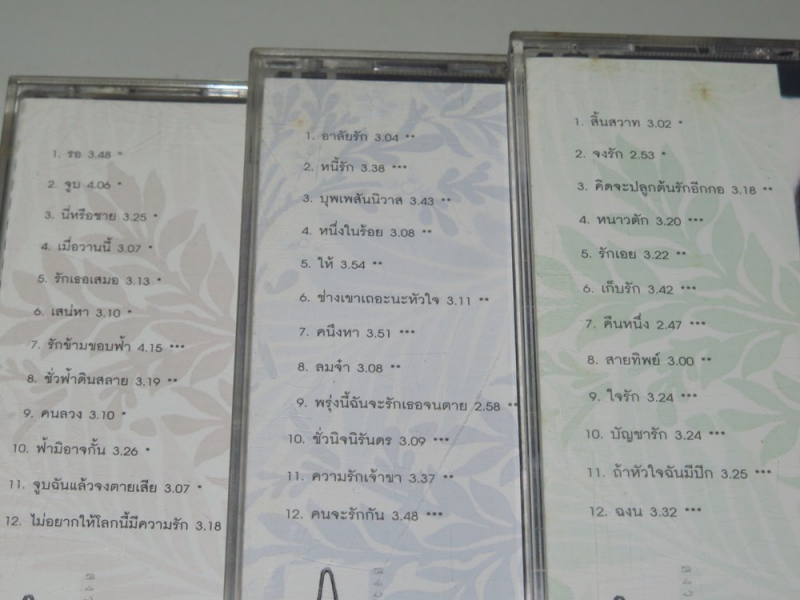 1. รอ 3.48 *
2. จูบ 4.06 *
3. นี่หรือชาย 3.25 *
4. เมื่อวานนี้ 3.07 *
5. รักเธอเสมอ 3.13 *
6. เสน่หา 3.10 *
7. รักข้ามขอบฟ้า 4.15 ***
8. ชั่วฟ้าดินสลาย 3.19 **
9. คนลวง 3.10 *
10. ฟ้ามิอาจกั้น 3.26 *
11. จูบฉันแล้วจงตายเสีย 3.07 *
12. ไม่อยากให้โลกนี้มีความรัก 3.18
1. อาลัยรัก 3.04 **
2. หนี้รัก 3.38 ***
3. บุพเพสันนิวาส 3.43 **
4. หนึ่งในร้อย 3.08 **
5. ให้ 3.54 **
6. ช่างเขาเถอะนะหัวใจ 3.11 **
7. คนึงหา 3.51 ***
8. ลมจ๋า 3.08 **
9. พรุ่งนี้ฉันจะรักเธอจนตาย 2.58 **
10. ชั่วนิจนิรันดร 3.09 ***
11. ความรักเจ้าขา 3.37 **
12. คนจะรักกัน 3.48 ***
1. สิ้นสวาท 3.02 *
2. จงรัก 2.53 *
3. คิดจะปลูกต้นรักอีกกอ 3.18 **
4. หนาวตัก 3.20 ***
5. รักเอย 3.22 **
6. เก็บรัก 3.42 ***
7. คืนหนึ่ง 2.47 ***
8. สายทิพย์ 3.00 **
9. ใจรัก 3.24 ***
10. บัญชารัก 3.24 ***
11. ถ้าหัวใจฉันมีปีก 3.25 ***
12. ฉงน 3.32 ***